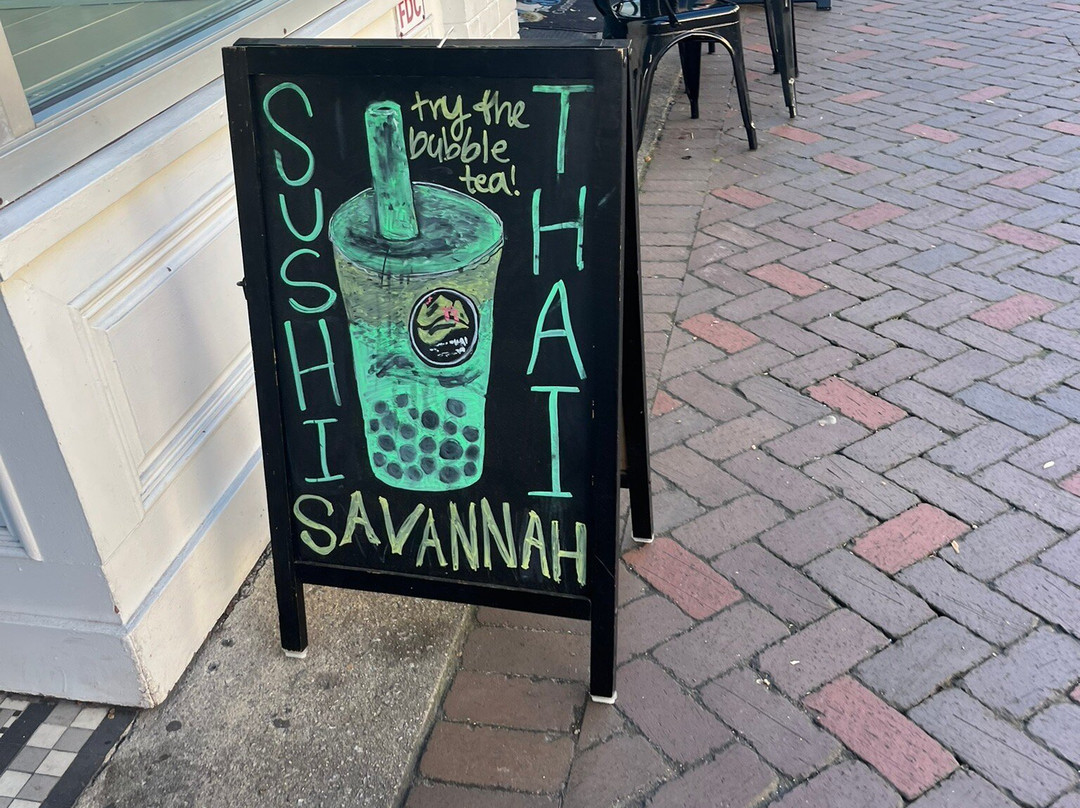 FDC
SUSHI
try the
bubble
tea!
THAI
SAVANNAH